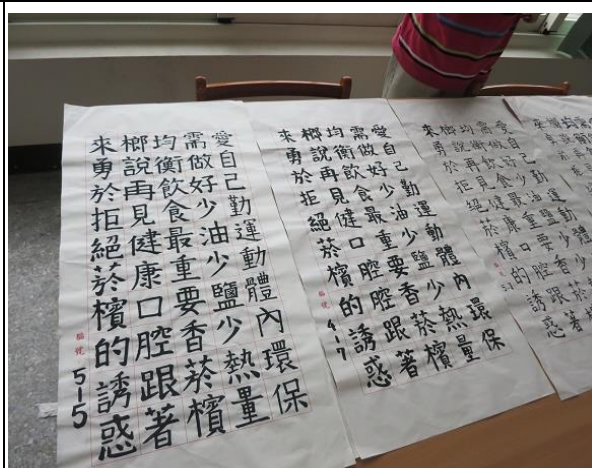 愛自己勤運動體內環保
需做好少油少鹽少熱量
均衡飲食最重要香菸檳
榔說再見健康口腔跟著
來勇於拒絕菸檳的誘惑
5-5
愛自己勤運動體內環保
需做好少油少鹽少熱量
均衡飲食最重要香菸檳
榔說再見健康口腔跟著
來勇於拒絕菸檳的誘惑
4-7
愛自己勤運動體
需做好少油少鹽少
均衡飲食最重要香菸
榔說再見健康口腔跟著
來勇於拒絕菸檳的誘惑